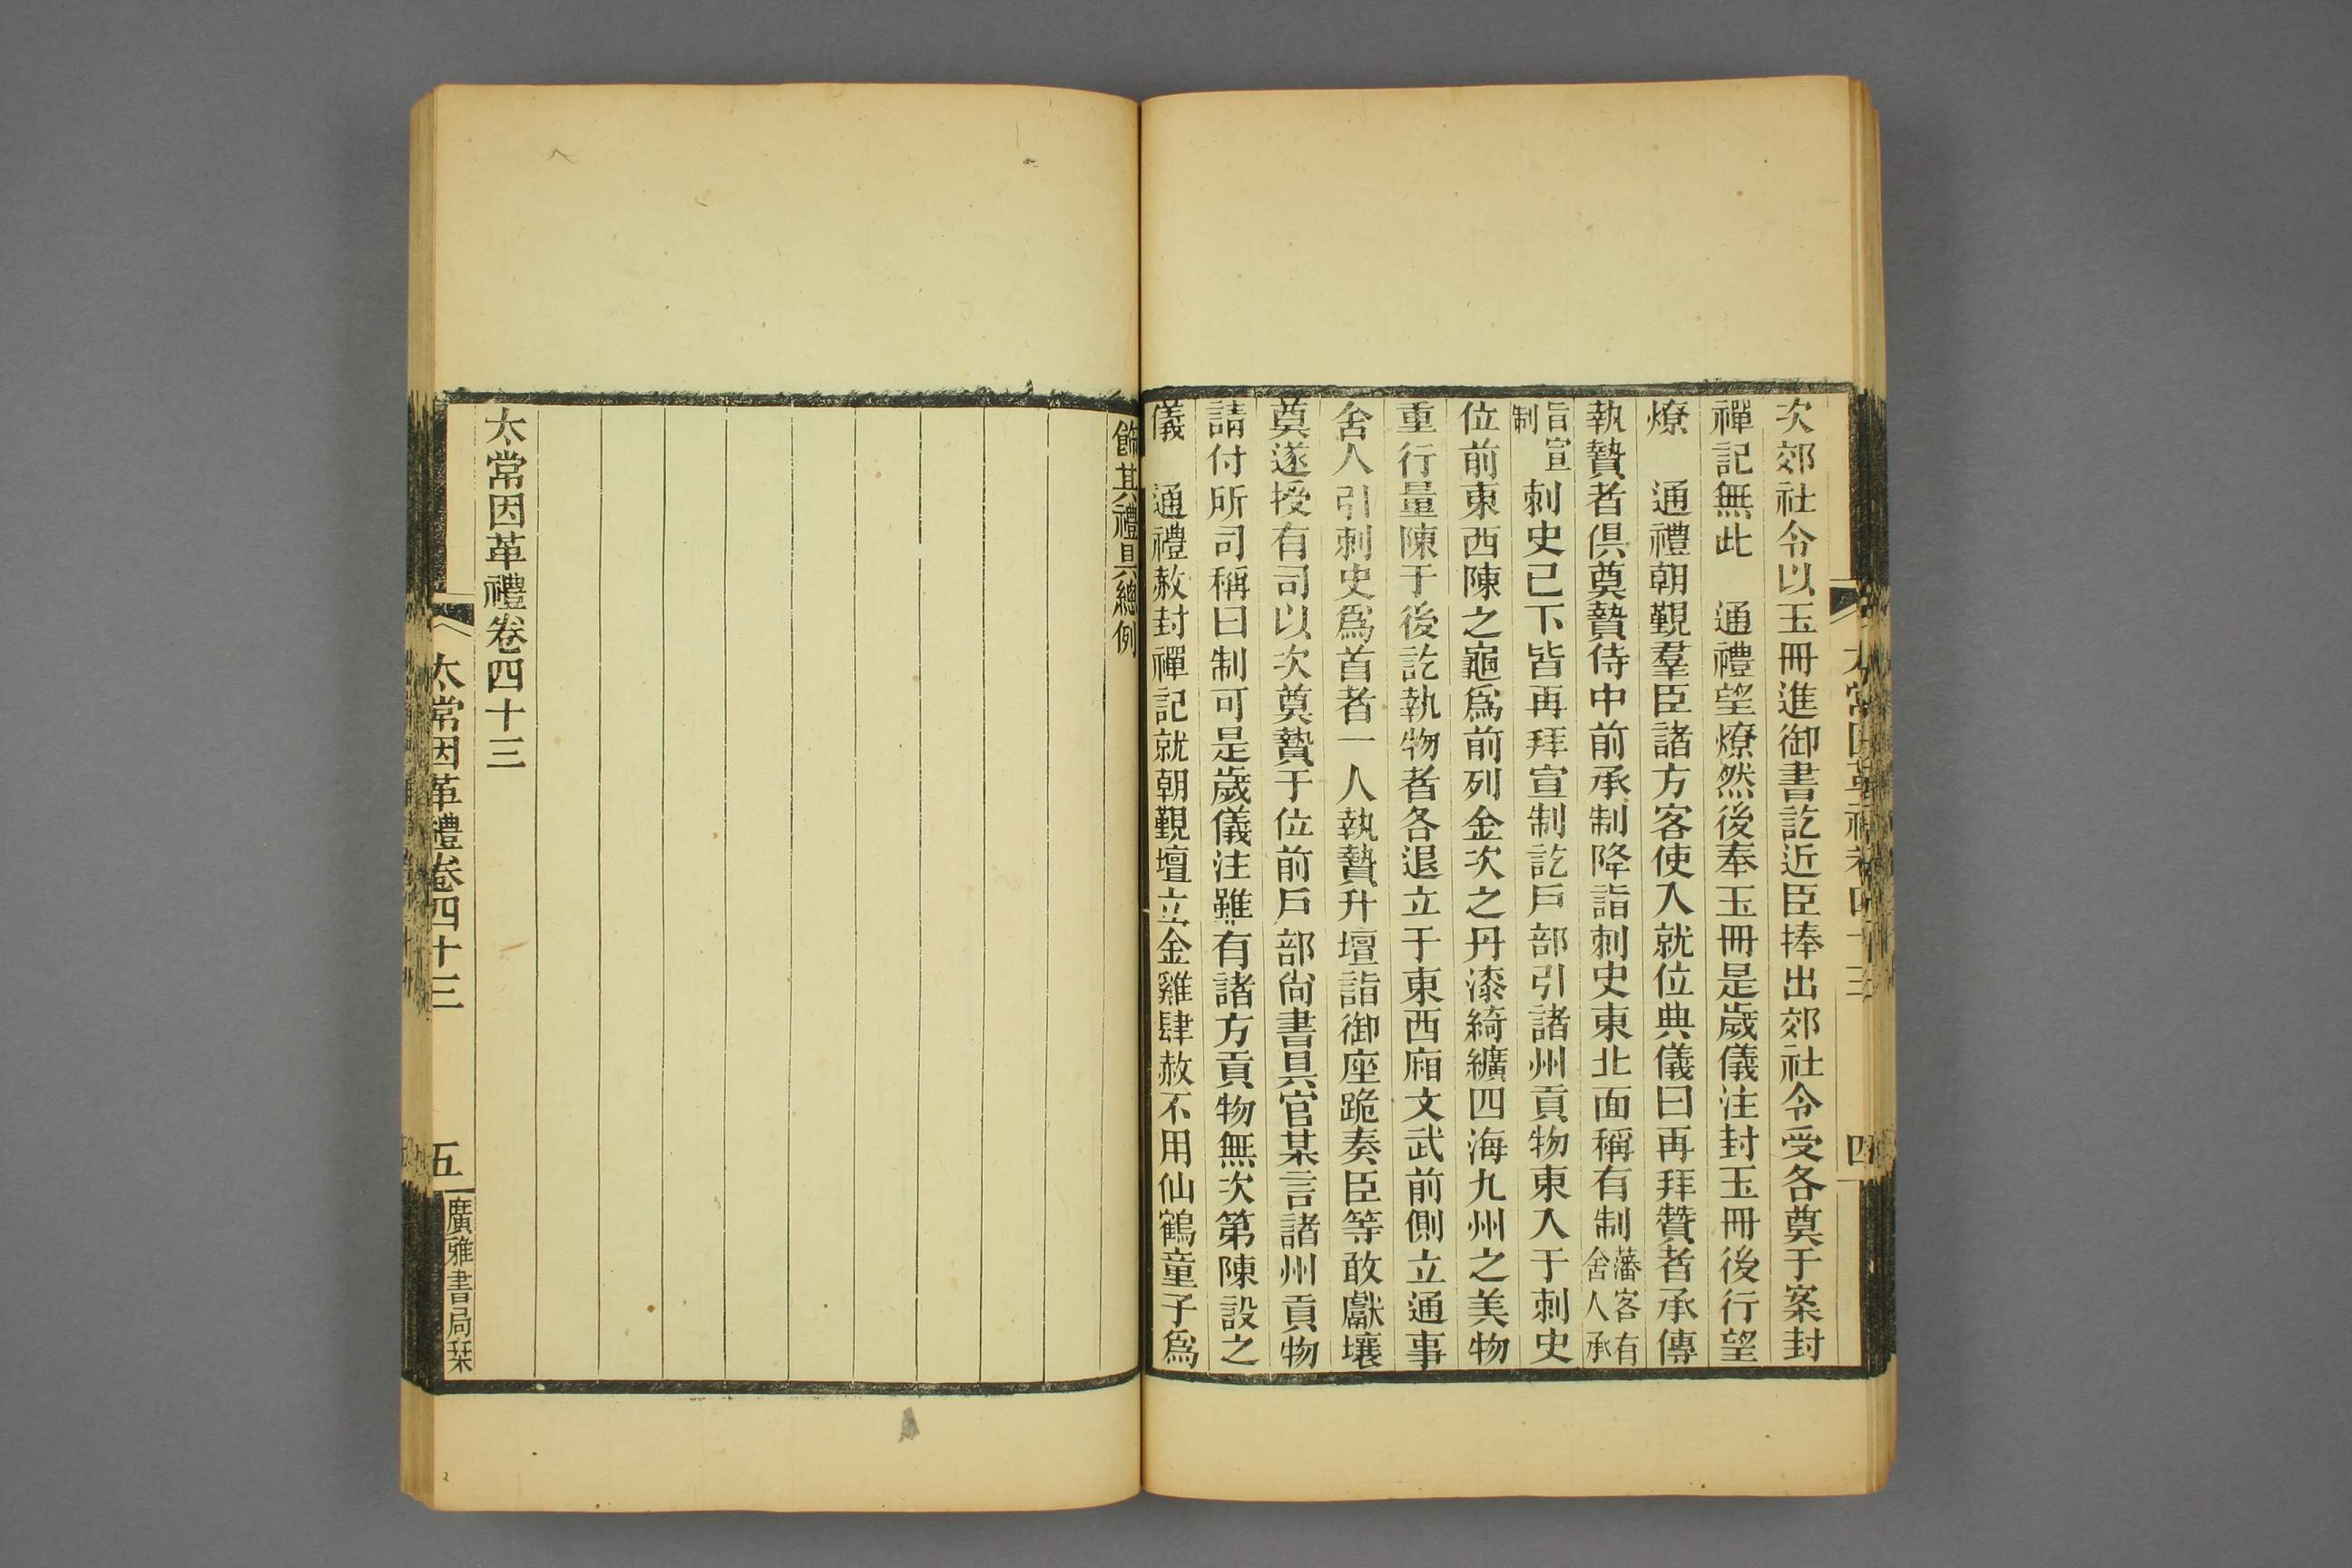 太常因革禮卷四十三
四
次郊社令以玉冊進御書訖近臣捧出郊社令受各奠于案封
禪記無此　通禮望燎然後奉玉冊是歲儀注封玉冊後行望
燎　通禮朝覲羣臣諸方客使入就位典儀曰再拜贊者承傳
執贄者俱奠贄侍中前承制降詣刺史東北面稱有制藩客有舍人承
旨宣制　刺史已下皆再拜宣制訖戶部引諸州貢物東入于刺史
位前東西陳之龜爲前列金次之丹漆綺纊四海九州之美物
重行量陳于後訖執物者各退立于東西廂文武前側立通事
舍人引刺史爲首者一人執贄升壇詣御座跪奏臣等敢獻壤
奠遂授有司以次奠贄于位前戶部尙書具官某言諸州貢物
請付所司稱曰制可是歲儀注雖有諸方貢物無次第陳設之
儀　通禮赦封禪記就朝覲壇立金雞肆赦不用仙鶴童子爲
飾其禮具總例
太常因革禮卷四十三
太常因革禮卷四十三
五
廣雅書局栞